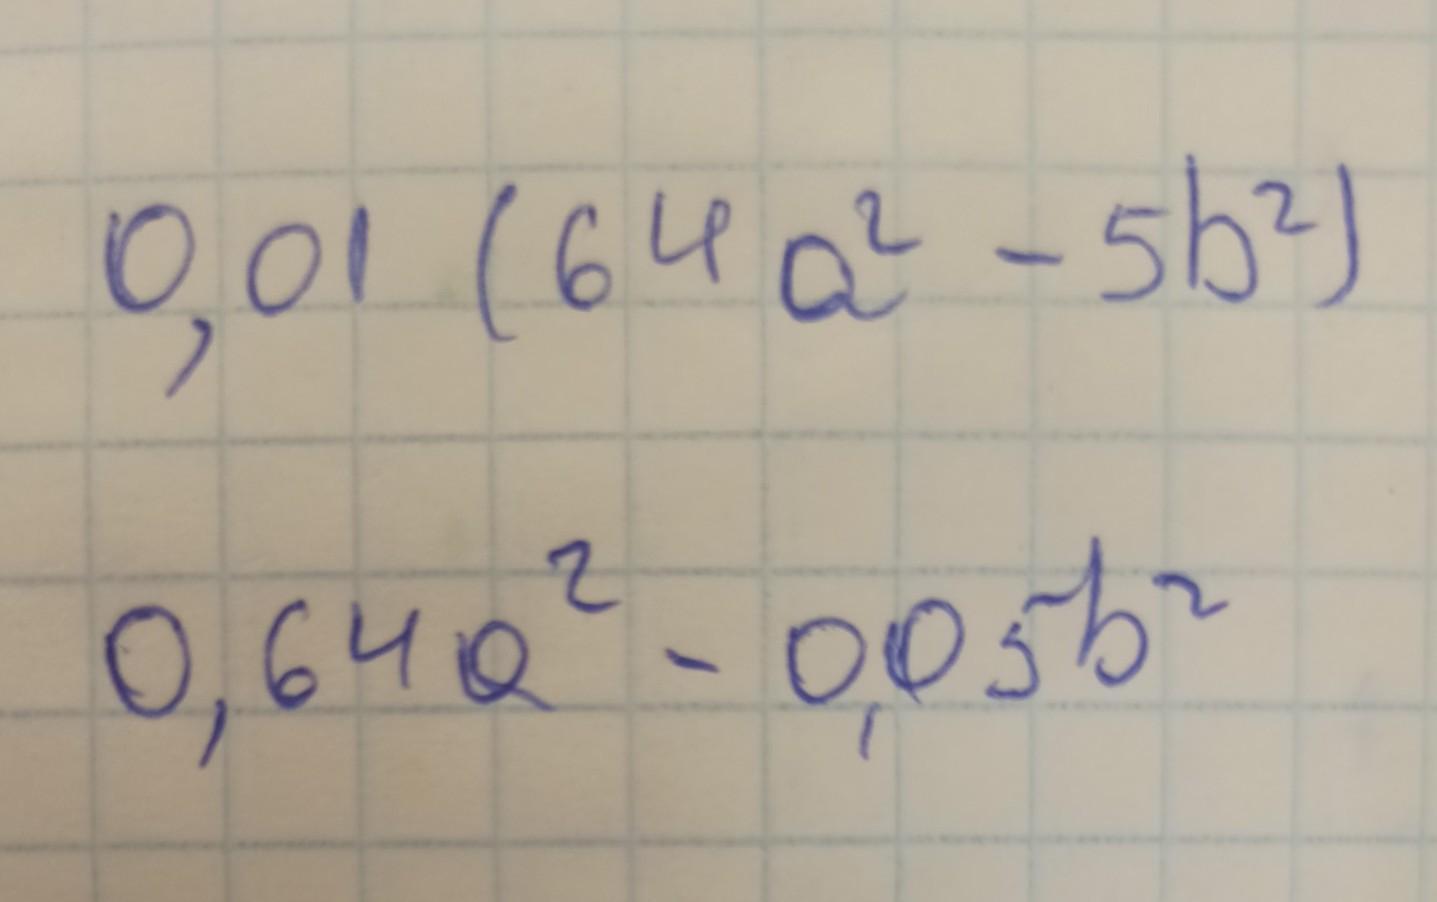 0,01 (64a² - 5b²)
0,64a² - 0,05b²